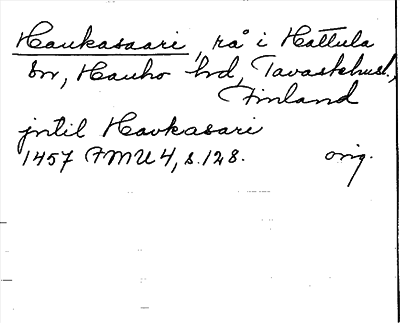 Haukasaari, rå i Hattula
sn, Hauho hd, Tavastehusl.,
Finland
jntil Havkasari
1457 FMU 4, s. 128. orig.